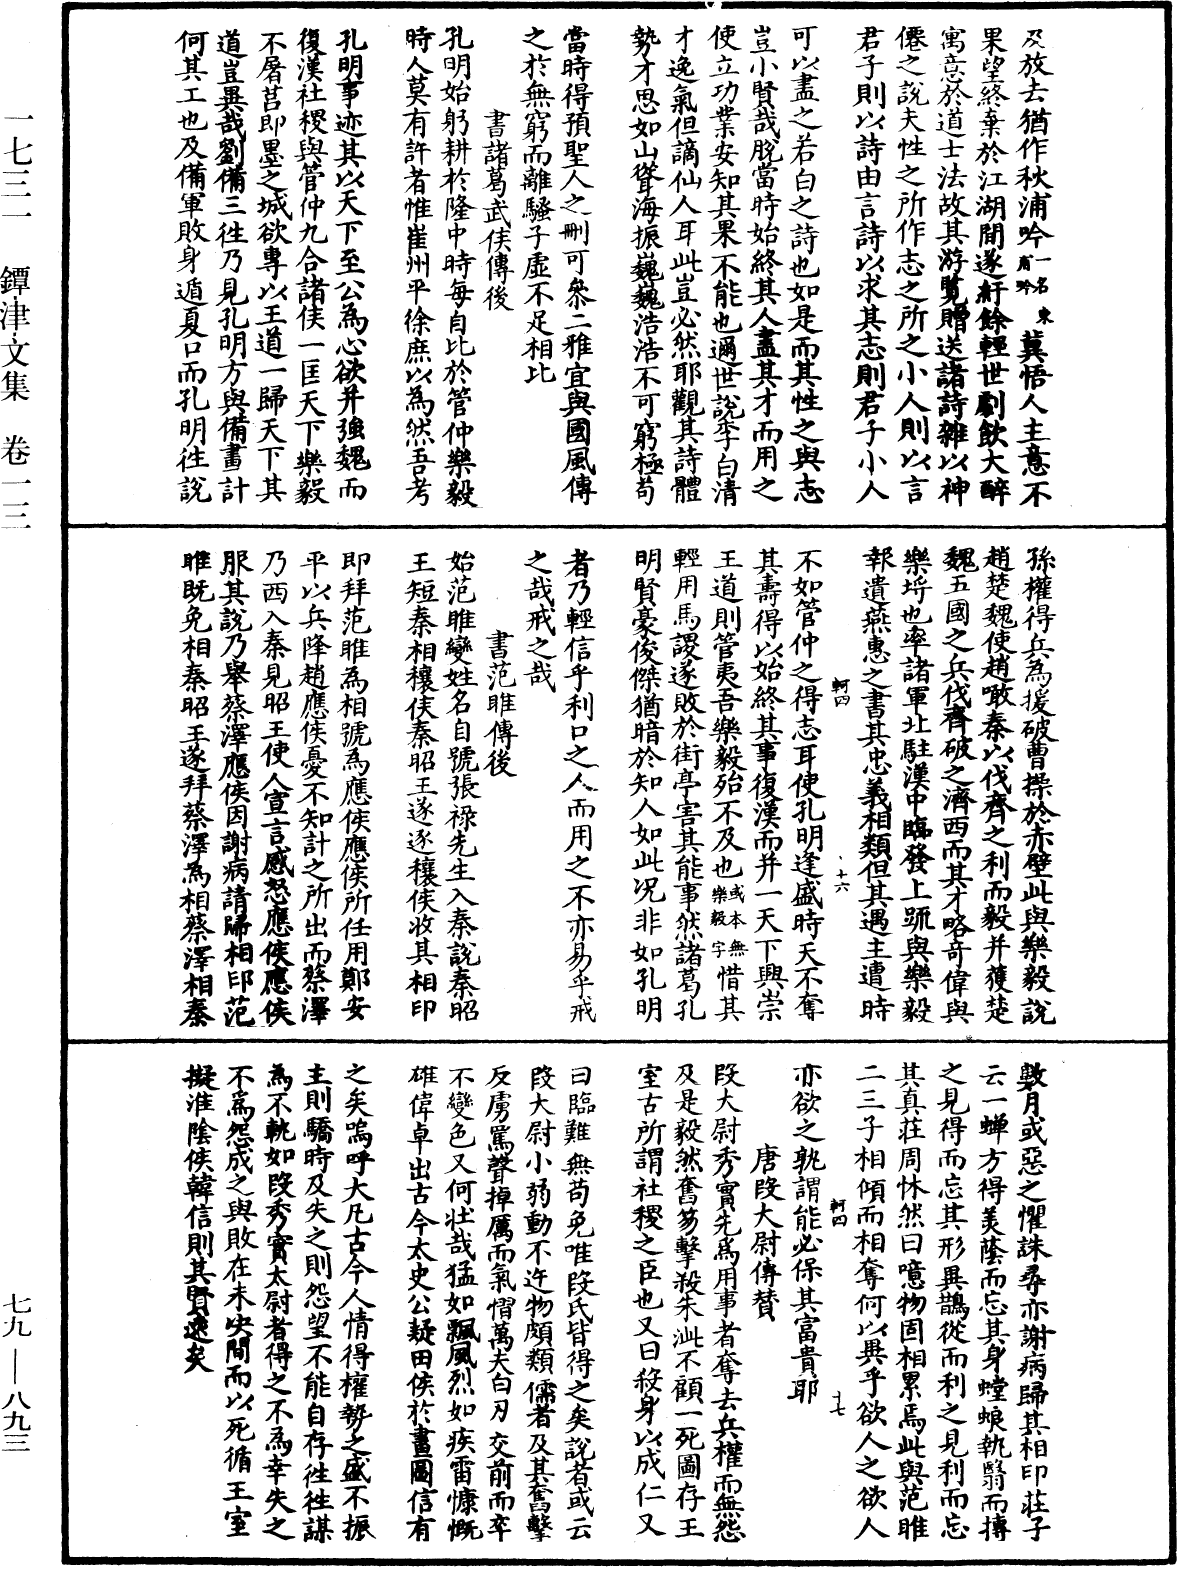 及放去猶作秋浦吟一名東甫吟冀悟人主意不
果望終棄於江湖間遂紆餘輕世劇飲大醉
寓意於道士法故其游覽贈送諸詩雜以神
僊之說夫性之所作志之所之小人則以言
君子則以詩由言詩以求其志則君子小人
可以盡之若白之詩也如是而其性之與志
豈小賢哉脫當時始終其人盡其才而用之
使立功業安知其果不能也邇世說李白清
才逸氣但謫仙人耳此豈必然耶觀其詩體
勢才思如山聳海振巍巍浩浩不可窮極苟
當時得預聖人之刪可參二雅宜與國風傳
之於無窮而離騷子虛不足相比
書諸葛武侯傳後
孔明始躬耕於隆中時每自比於管仲樂毅
時人莫有許者惟崔州平徐庶以為然吾考
孔明事迹其以天下至公為心欲并強魏而
復漢社稷與管仲九合諸侯一匡天下樂毅
不屠莒即墨之城欲專以王道一歸天下其
道豈異哉劉備三往乃見孔明方與備畫計
何其工也及備軍敗身遁夏口而孔明往說
孫權得兵為援破曹操於赤壁此與樂毅說
趙楚魏使趙噉秦以伐齊之利而毅并獲楚
魏五國之兵伐齊破之濟西而其才略奇偉與
樂埓也率諸軍北駐漢中臨發上疏與樂毅
報遺燕惠之書其忠義相類但其遇主遭時
不如管仲之得志耳使孔明逢盛時天不奪
其壽得以始終其事復漢而并一天下興崇
王道則管夷吾樂毅殆不及也或本無樂毅字惜其
輕用馬謖遂敗於街亭害其能事然諸葛孔
明賢豪俊傑猶暗於知人如此況非如孔明
者乃輕信乎利口之人而用之不亦易乎戒
之哉戒之哉
書范睢傳後
始范睢變姓名自號張祿先生入秦說秦昭
王短秦相穰侯秦昭王遂逐穰侯收其相印
即拜范睢為相號為應侯應侯所任用鄭安
平以兵降趙應侯憂不知計之所出而蔡澤
乃西入秦見昭王使人宣言感怒應侯應侯
服其說乃舉蔡澤應侯因謝病請歸相印范
睢既免相秦昭王遂拜蔡澤為相蔡澤相秦
數月或惡之懼誅尋亦謝病歸其相印莊子
云一蟬方得美蔭而忘其身螳蜋執翳而搏
之見得而忘其形異鵲從而利之見利而忘
其真莊周怵然曰噫物固相累焉此與范睢
二三子相傾而相奪何以異乎欲人之欲人
亦欲之孰謂能必保其富貴耶
唐段大尉傳贊
段大尉秀實先為用事者奪去兵權而無怨
及是毅然奮笏擊殺朱泚不顧一死圖存王
室古所謂社稷之臣也又曰殺身以成仁又
曰臨難無苟免唯段氏皆得之矣說者或云
段大尉小弱動不迕物頗類儒者及其奮擊
反虜罵聲掉厲而氣慴萬夫白刃交前而卒
不變色又何壯哉猛如飄風烈如疾雷慷慨
雄偉卓出古今太史公疑田侯於畫圖信有
之矣嗚呼大凡古今人情得權勢之盛不振
主則驕時及失之則怨望不能自存往往謀
為不軌如段秀實太尉者得之不為幸失之
不為怨成之與敗在未央間而以死循王室
擬淮陰侯韓信則其賢遠矣
軻四
十六
軻四
十七
一七三一 鐔津文集 卷一三
七九—八九三